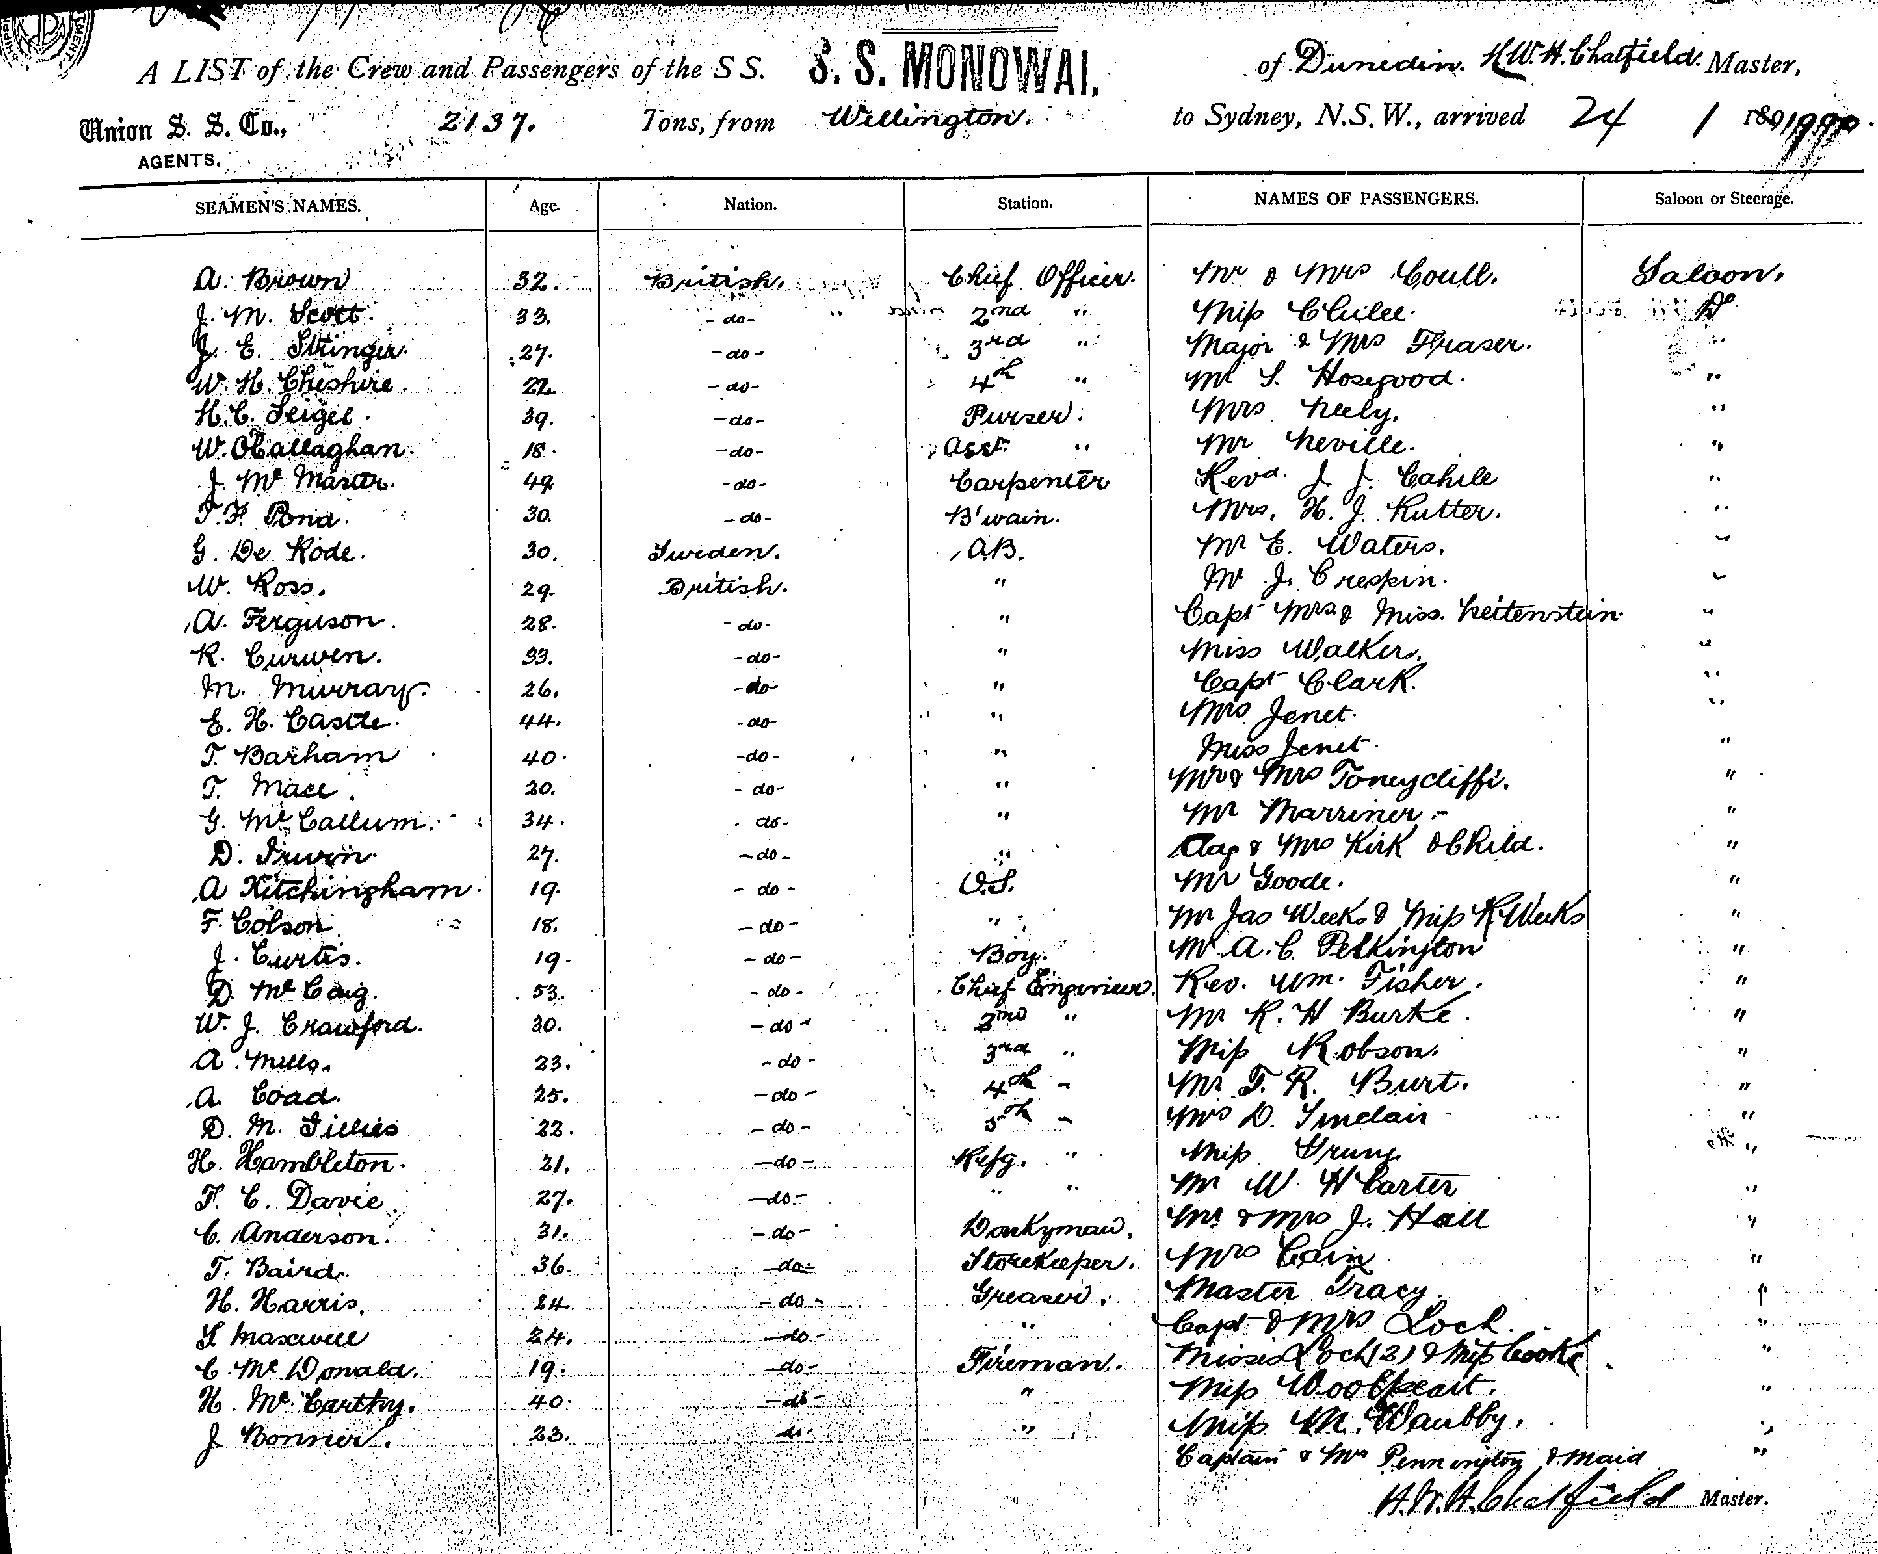 A LIST of the Crew and Passengers of the S S. S. S. MONOWAI, of Dunedin. H.W.H. Chatfield. Master,
Union S. S. Co., 2137. Tons, from Wellington. to Sydney, N.S.W., arrived 24 1
AGENTS.
SEAMEN'S NAMES. Age. Nation. Station. NAMES OF PASSENGERS. Saloon or Steerage.
A. Brown 32. British. Chief Officer. Mr & Mrs Coull. Saloon.
J. M. Scott. 33. -do- 2nd " Miss Do
J. E. Stringer. 27. -do- 3rd " Major & Mrs Fraser. "
W. H. Cheshire. 22 -do- 4th " Mr S. Hosegood. "
H. C. Seigel. 39. -do- Purser. Mrs Neely. "
W. OCallaghan. 18. -do- Asst. " Mr Neville. "
J. Mc Master. 49 -do- Carpenter Revd. J. J. Cahill "
T. F. Pond. 30. -do- B'wain. Mrs. H. J. Rutter. "
G. De Rode. 30. Sweden. A.B. Mr E. Waters. "
W. Ross. 29. British. " Mr J. Crespin. "
A. Ferguson. 28. -do- " Capt Mrs & Miss "
R. Curwen. 33. -do- " Miss Walker. "
M. Murray. 26. -do- " Capt Clark. "
E. H. Castle. 44. -do- " Mrs Jenet. "
T. Barham 40. -do- " Miss Jenet. "
T. Mace. -do- " Mr & Mrs Toneycliffe. "
G. Mc Callum. 34. do- " Mr Marriner - "
D. Irwin. 27. -do- " & Mrs Kirk & Child. "
A Kitchingham. 19. -do- O.S. Mr Goode. "
F. Colson. 18. -do- " Mr Jas Weeks & Miss K Weeks "
J. Curtis. 19. -do- Boy. Mr A. C. Pelkington "
D. Mc Caig. 53. -do- Chief Engineer. Rev. Wm. Fisher. "
W. J. Crawford. 30. -do- 2nd " Mr R. H Burke. "
A. Mills. 23. -do- 3rd " Miss Robson. "
A. Coad. 25. -do- 4th - Mr T. R. Burt. "
D. M. Gillies 22. -do- 5th - Mrs D. Sinclair "
H. Hambleton. 21. -do- Refg. " Miss "
F. C. Davie. 27. -do- " " Mr W. H Carter "
C. Anderson. 31. -do- Donkyman. Mr & Mrs J. Hall "
T. Baird. 36. -do- Storekeeper. Mrs Cain "
H. Harris. 24 -do- Greaser. Master Tracy. "
S Maxwell 24. -do- " Capt & Mrs Lock. "
C Mc Donald. 19. -do- Fireman. Misses Loch (2) & Miss Cooke "
H. Mc Carthy. 40. -do- " Miss "
J Bonner. 23. do. " Miss M. "
Captain & Mrs Pennington & Maid "
H.W.H. Chatfield Master.